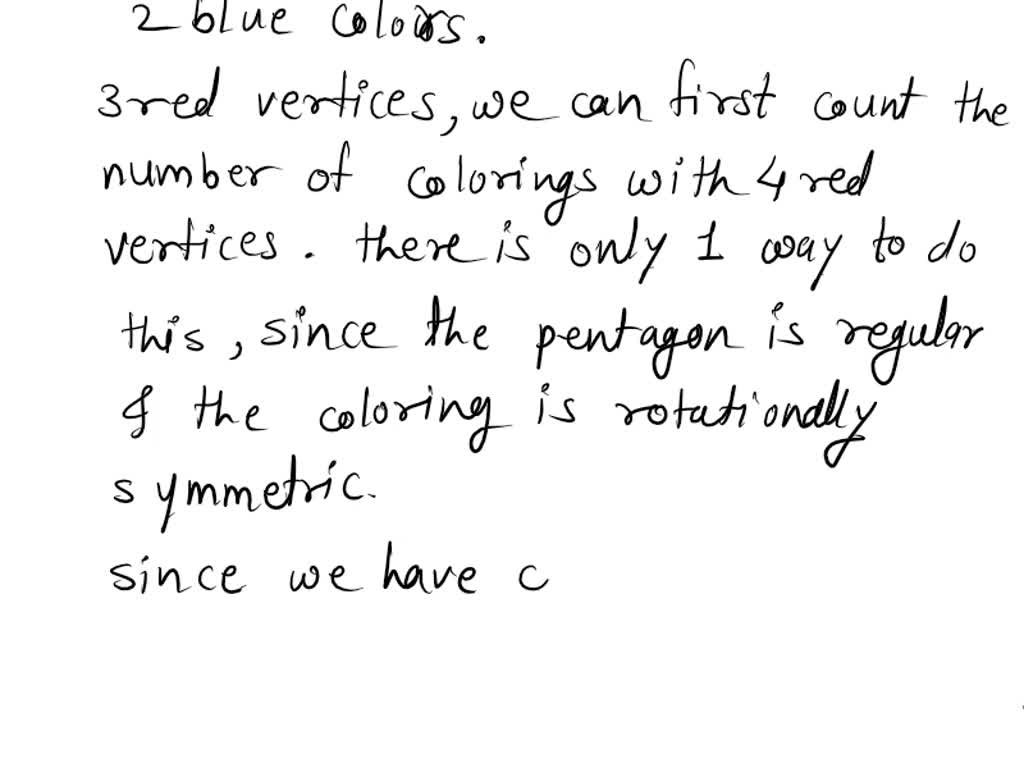 2 blue colors.
3 red vertices, we can first count the
number of colorings with 4 red
vertices. there is only 1 way to do
this, since the pentagon is regular
& the coloring is rotationally
symmetric.
since we have c